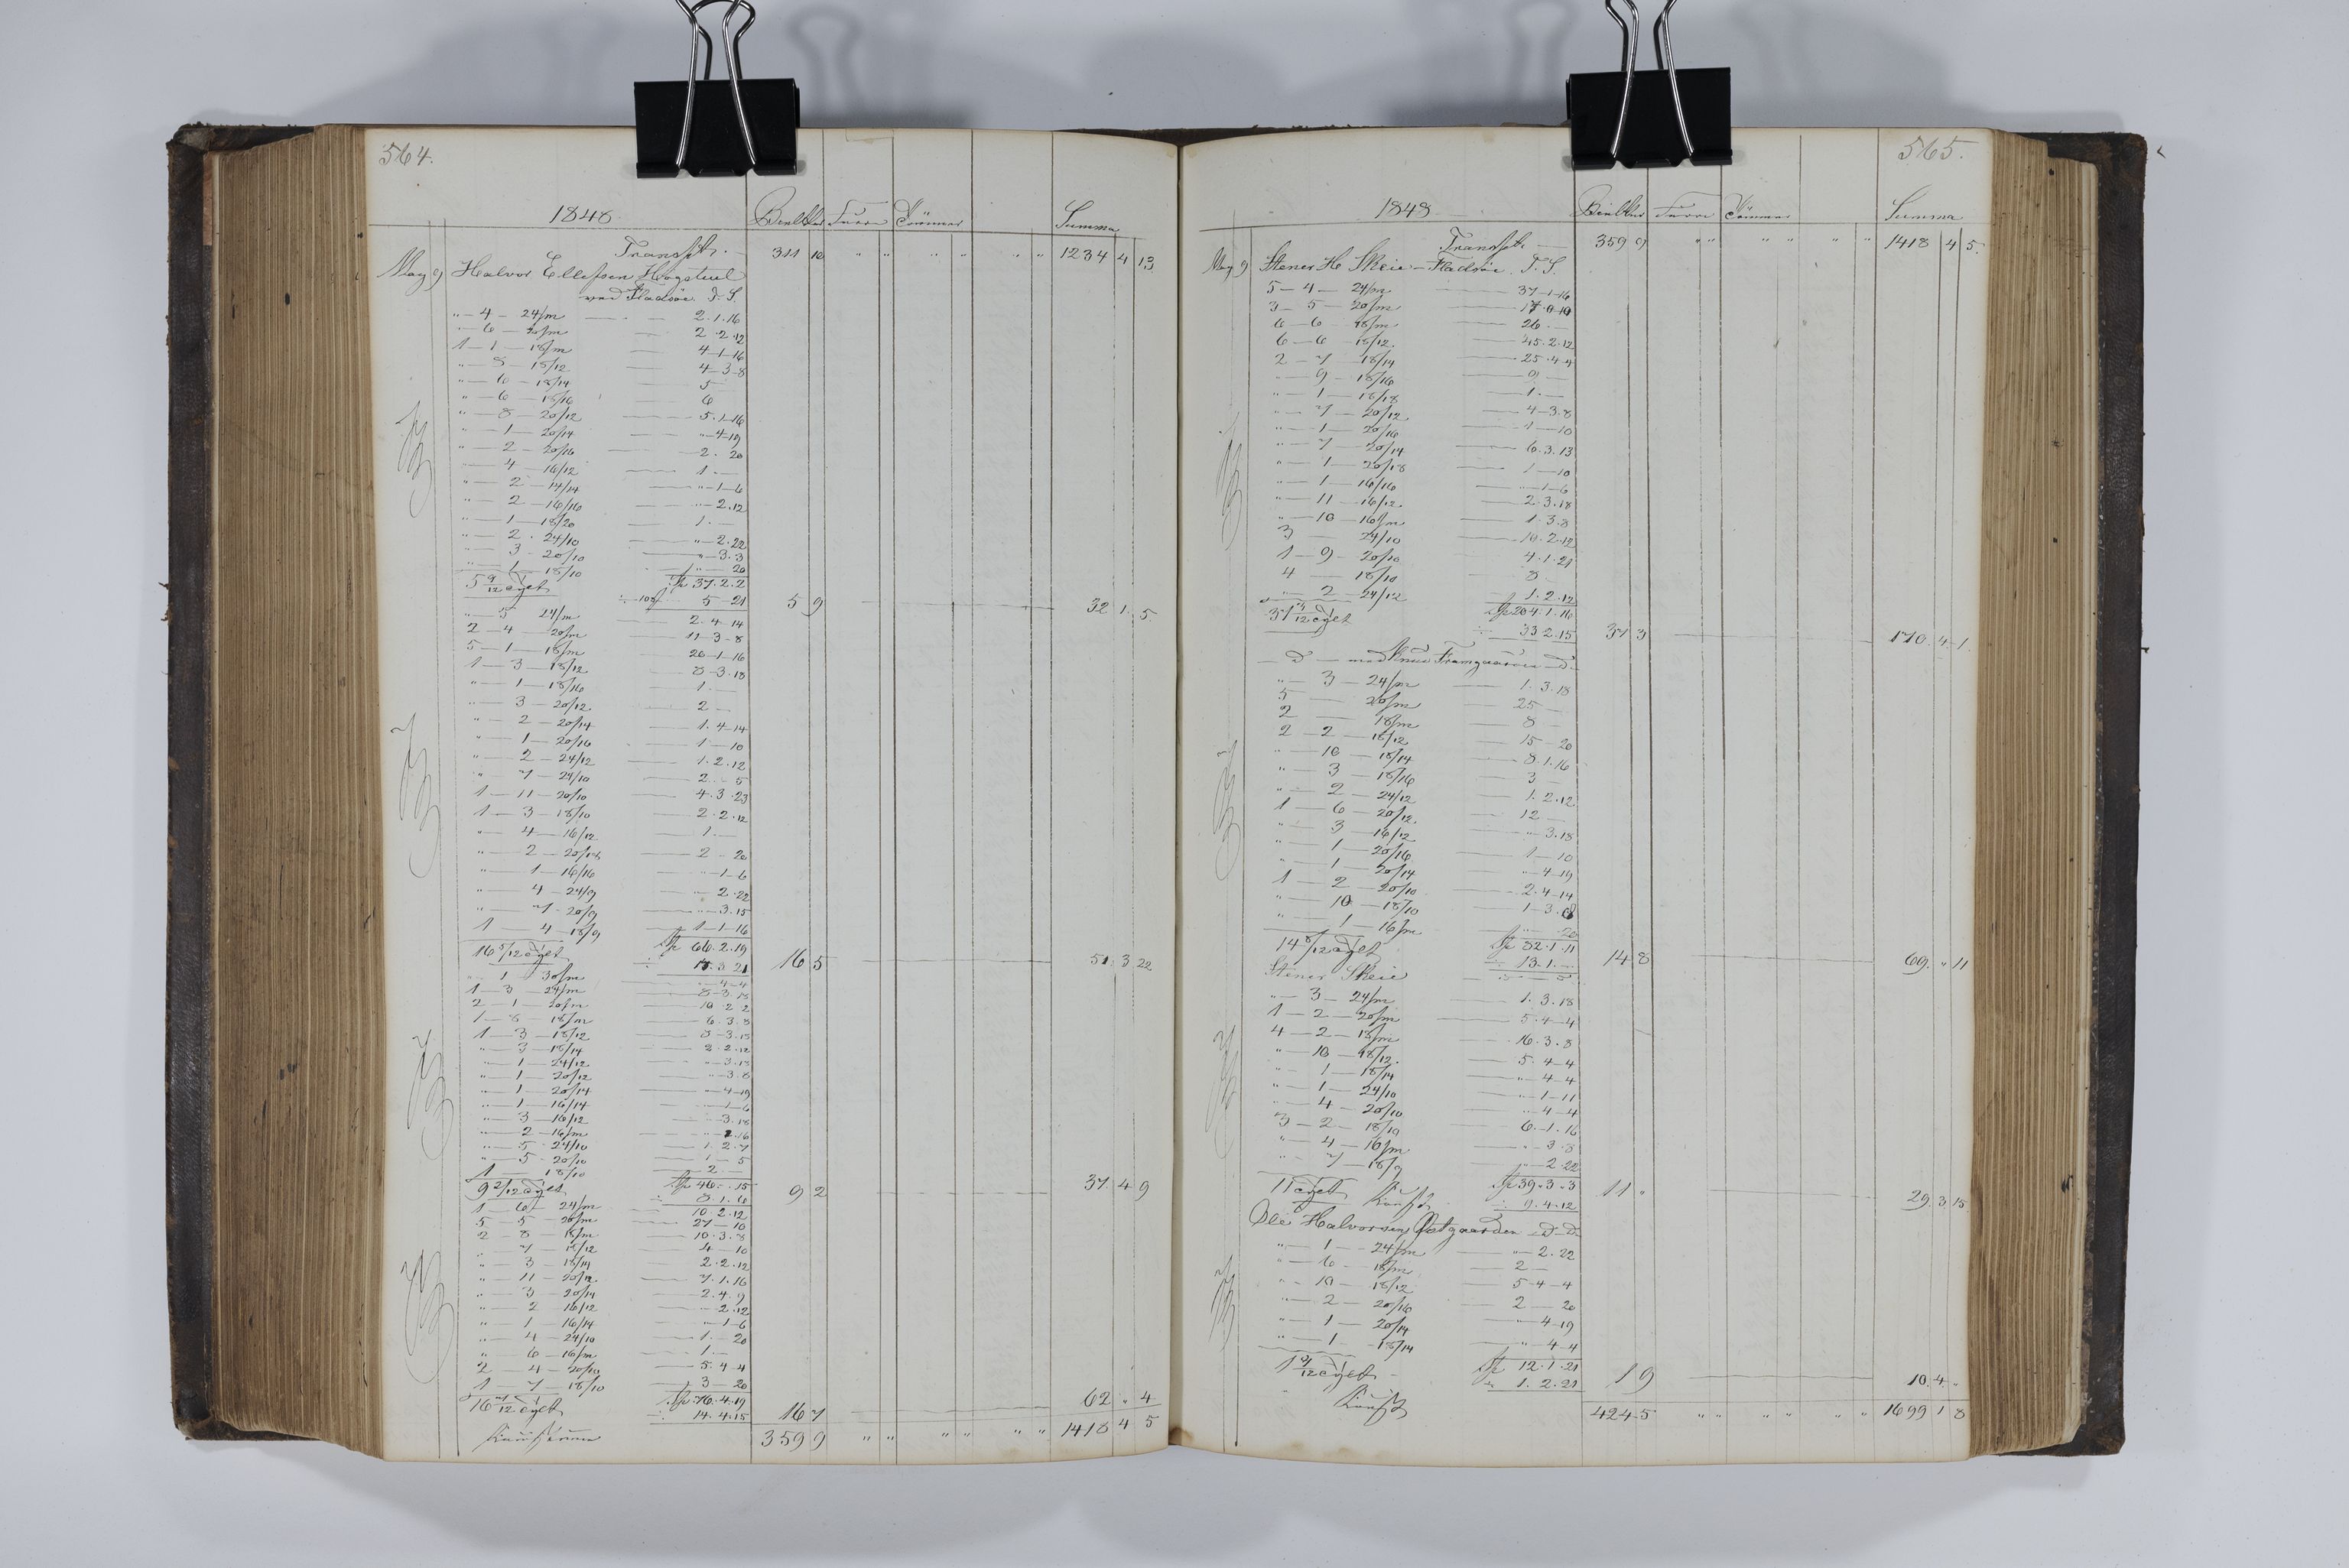 564.
1848. Summa
Transpt. — 311 10 " " " " " " 1234 4 13
May 9 Halvor Ellefsen Hogstuel
ved Fladsøe T. S.
" — 4 — 24/m — 2. 1. 16
" — 6 — 20/m 2. 2. 12
1 — 1 — 18/m — 4 — 1 — 16
" — 8 — 18/12 — 4 — 3 — 8
" — 6 — 18/14 — 5
" — 6 — 18/16 — 6
" — 8 — 20/12 — 5. 1 — 16
" — 1 — 20/14 — " — 4 — 19
" — 2 — 20/16 — 2. 20
" — 4 — 16/12 — 1. —
" — 2 — 14/14 — " — 1 — 6
" — 2 — 16/16 — " — 2. 12
" — 1 — 18/20 — 1. —
" — 2 — 24/10 — " — 2. 22
" — 3 — 20/10 — " — 3. 3
" — 1 — 18/10 — " — 20
5 9/12 Tylt 37. 2. 2
÷ 5 — 21 5 9 — 32 1. 5
" — 5 24/m — 2. 4. 14
2 — 4 — 20/m — 11 — 3 — 8
5 — 1 — 18/m — 20 — 1 — 16
1 — 3 — 18/12 — 8 — 3. 18
" — 1 — 18/16 — 1. —
" — 3 — 20/12 — 2 —
" — 2 — 20/14 — 1. 4 — 14
" — 1 — 20/16 — 1 — 10
" — 2 — 24/12 — 1. 2. 12
" — 7 — 24/10 — 2. 5
1 — 11 — 20/10 — 4. 3. 23
1 — 3 — 18/10 — 2. 2. 12
" — 4 — 16/12 — 1. —
" — 2 — 20/18 — 2 — 20
" — 1 — 16/16 — " — 1 — 6
" — 4 — 24/9 — " 2. 22
" — 7 — 20/9 — " — 3. 15
1 4 — 18/9 — 1 — 1 — 16
16 5/12 Tylt 66. 2. 19
÷ 3 21 16 5 — 51. 3 22
" — 1 — 30/m — " — 4 — 4
1 — 3 — 24/m — 8 — 3. 18
2 — 1 — 20/m — 10. 2. 2
1 — 8 — 18/m — 6. 3. 8
1 — 3 — 18/12 — 8 — 3. 18
" — 3 — 18/14 — 2. 2. 12
" — 1 — 24/12 — " — 3. 18
" — 1 — 20/12 — " — 3. 8
" — 1 — 20/14 — " — 4 — 19
" — 1 — 16/14 — " — 1 — 6
" — 3 — 16/12 — " — 3. 18
" — 2 — 16/m — " 16
" — 5 — 24/10 — 1. 2. 7
" — 5 — 20/10 — 1 — 5
1 — 18/10 — 2 —
9 2/12 Tylt 46. — 15
÷ 8. 1. 6 9 2 — 37. 4 9
1 — 6 — 24/m — 10. 2. 12
5 5 — 20/m — 27 — 10
2 — 8 — 18/m — 10. 3. 8
" — 7 — 18/12 — 4 — 10
" — 3 — 18/14 — 2. 2. 12
" — 11 — 20/12 — 7. 1. 16
" — 3 — 20/14 — 2. 4. 9
" — 2 — 16/12 — " — 2. 12
" — 1 — 16/14 — " — 1 — 6
" — 4 — 24/10 — 1. — 20
" — 6 — 16/m — 1. —
2 — 4 — 20/10 — 5. 4 4
1 — 7 — 18/10 — 3 — 20
16 7/12 Tylt 76. 4. 19
÷ 14. 4. 15 16 7 — 62 " 4
359 9 " " " " " " 1418 4 5
565.
1848. Summa
Transpt. — 359 9 " " " " " " 1418 4 5.
May 9 Stener H. Skeie — Fladsøe. T. S.
5 — 4 — 24/m — 37 — 1 — 16
3 — 5 — 20/m —
6 — 6 — 18/m — 26. —
6 — 6 18/12. — 45. 2. 12
2 — 7 — 18/14 — 25. 4 — 4
" — 9 — 18/16 — 9 —
" — 1 — 18/18 — 1. —
" — 7 — 20/12. — 4 — 3. 8
" — 1 — 20/16 — 1 — 10
" — 7 — 20/14 — 6. 3. 13
" — 1 — 20/18 — 1 — 10
" — 1 — 16/16 — " — 1 — 6
" — 11 — 16/12. — 2. 3. 18
" — 10 — 16/m — 1. 3. 8
3 24/10 — 10. 2. 12
1 — 9 — 20/10 4. 1. 21
4 — 18/10 8
" — 2 — 24/12 1. 2. 12
37 3/12 Tylt 204. 1. 16
÷ 33 2. 15 37 3 — 170. 4 — 1.
— D — med Knud Framgaarden D
" — 3 — 24/m — 1. 3. 18
5 20/m — 25 —
2 — 18/m — 8 —
2 — 2 — 18/12 — 15 — 20
" — 10 — 18/14 — 8. 1. 16
" — 3 — 18/16 — 3 —
" — 2 — 24/12 — 1. 2. 12
1 — 6 — 20/12. — 12 —
" — 3 — 16/12 — " — 3. 18
" — 1 — 20/16 — 1 — 10
" — 1 — 20/14 — " — 4 — 19
1 — 2 — 20/10 — 2. 4 — 14
" — 10 — 18/10 — 1 — 3.
" — 1 — 16/m — " 20
14 8/12 Tylt 82. 1. 11
÷ 13. 1. — 14 8 — 69. " 11
Stener Skeie
" — 3 — 24/m — 1. 3. 18
1 — 2 — 20/m — 5. 4 — 4
4 — 2 — 18/m — 16. 3. 8
" — 10 — 18/12. — 5. 4 — 4
" — 1 — 18/14 — " — 4 — 4
" — 1 — 24/10 — " — 1 — 11
" — 4 — 20/10 — " 4 — 4
3 — 2 — 18/10 — 6. 1. 16
" — 4 — 16/m — " 3. 8
" — 7 — 18/9 — " — 2. 22
11 Tylt 39. 3. 3
÷ 9. 4. 12 11 " — 29. 3 15
Ole Halvorsen Østgaarden D — D
" — 1 — 24/m — " — 2. 22
" — 6 — 18/m — 2 —
" — 10 — 18/12 — 5 — 4 — 4
" — 2 — 20/16 — 2 — 20
" — 1 — 20/14 — " 4 — 19
" — 1 — 18/14 — " 4 — 4
1 9/12 Tylt 12. 1. 21
1. 2. 21 1 9 — 10. 4. "
424 5 " " " " " " 1699 1 8